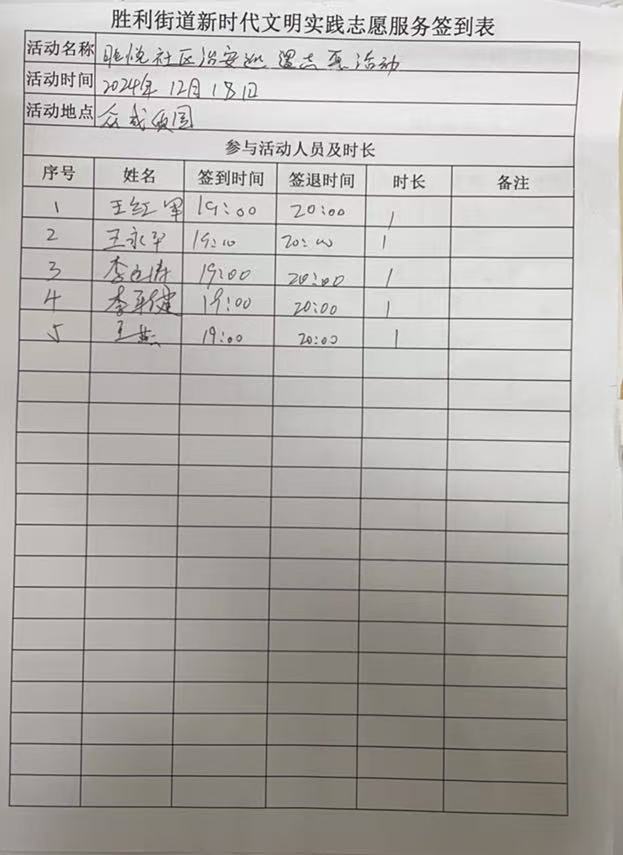 胜利街道新时代文明实践志愿服务签到表
活动名称 社区治安巡逻志愿活动
活动时间 2024年 12月 18日
活动地点 众成
参与活动人员及时长
序号 姓名 签到时间 签退时间 时长 备注
1 王红军 19:00 20:00 1
2 王永平 19:00 20:00 1
3 李 19:00 20:00 1
4 李 健 19:00 20:00 1
5 王燕 19:00 20:00 1